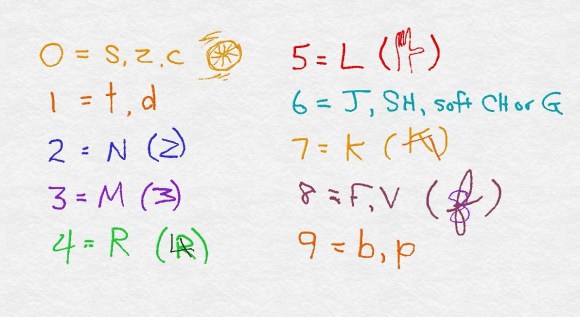 0 = S, Z, C
1 = t, d
2 = N (Z)
3 = M (3)
4 = R (4R)
5 = L ( )
6 = J, SH, soft CH or G
7 = K (K)
8 = F, V (f)
9 = b, p